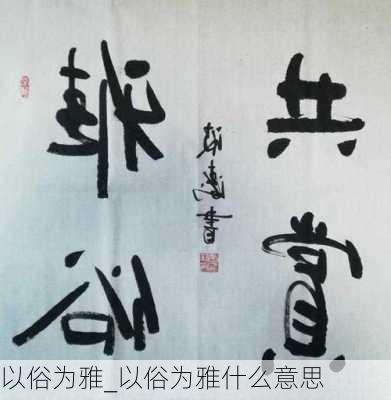 雅俗
共賞
書
以俗为雅_以俗为雅什么意思